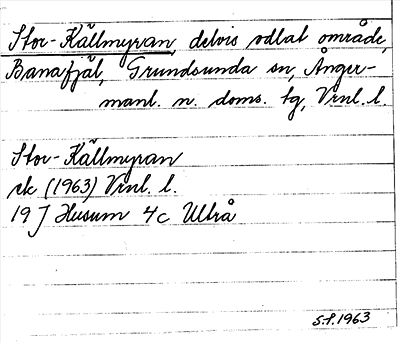 Stor-Källmyran, delvis odlat område,
Banafjäl, Grundsunda sn, Ånger-
manl. n. doms. tg, Vrnl. l.
Stor-Källmyran
ek (1963) Vrnl. l.
19 J Husum 4c Ultrå
S.f. 1963